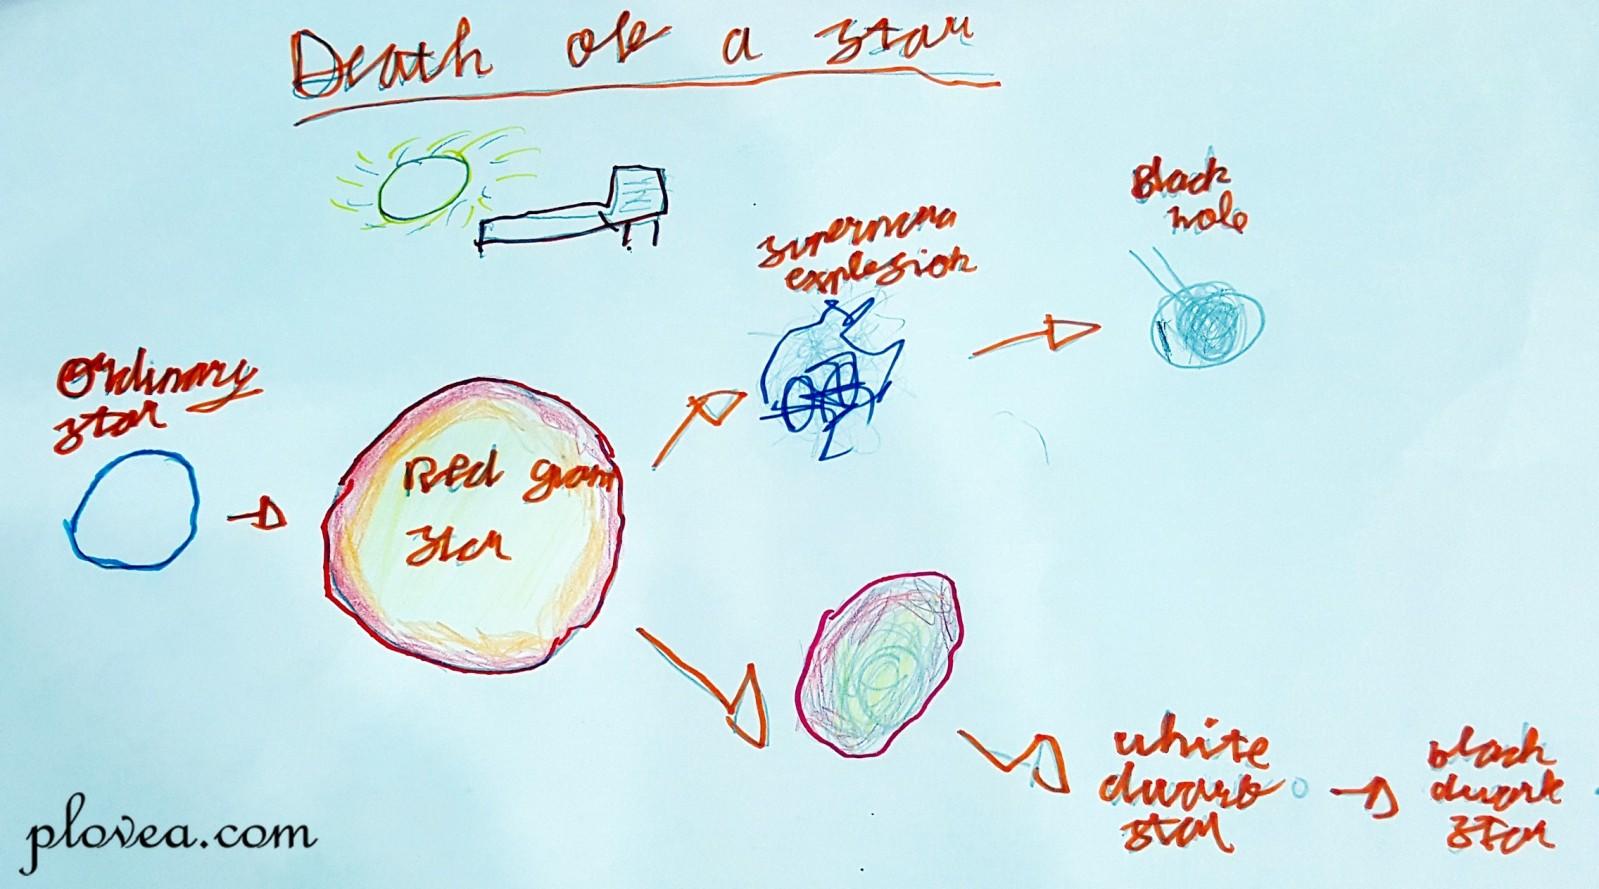 Death of a star
Ordinary
star
Red giant
star
supernova
explosion
Black
hole
white
dwarf
star
black
dwarf
star
plovea.com